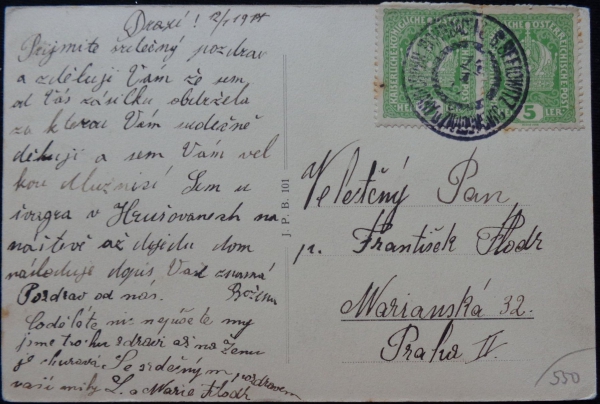 Drazí! 2/I 19
Přijmite srdečný pozdrav
a zděluji Vám že sem
od Vás zásilku obdržela
za kterou Vám srdečně
děkuji a sem Vám vel
kou dlužnicí Sem u
švagra v Hrušovanech na
návštěvě až dojedu dom
následuje dopis Vaš
Pozdrav od nás. Božena
Co děláte nic nepíšete my
jsme trochu zdraví až na ženu
je churavá Se srdečným pozdravem
vaši L. a Marie Flodr
J. P. B. 101
KAISERLICHE KÖNIGLICHE
ÖSTERREICHISCHE POST
5
HELLER
Velectěný Pan
p. František Flodr
Marianská 32.
Praha II.
550